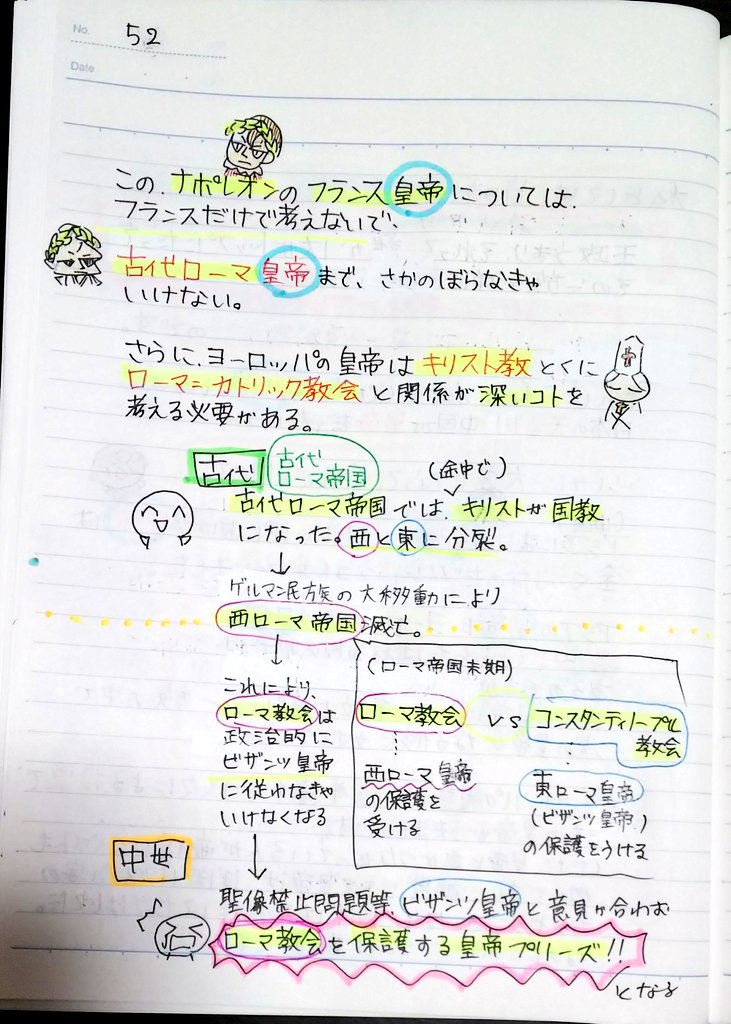 No. 52
Date
この、ナポレオンのフランス皇帝については、
フランスだけで考えないで、
古代ローマ皇帝まで、さかのぼらなきゃ
いけない。
さらに、ヨーロッパの皇帝はキリスト教とくに
ローマ=カトリック教会と関係が深いコトを
考える必要がある。
古代
古代
ローマ帝国
(途中で)
古代ローマ帝国では、キリストが国教
になった。西と東に分裂。
↓
ゲルマン民族の大移動により
西ローマ帝国滅亡。
↓
これにより、
ローマ教会は
政治的に
ビザンツ皇帝
に従わなきゃ
いけなくなる
(ローマ帝国末期)
ローマ教会 vs コンスタンティノープル
教会
西ローマ皇帝
の保護を
受ける
東ローマ皇帝
(ビザンツ皇帝)
の保護をうける
中世
↓
聖像禁止問題等、ビザンツ皇帝と意見が合わず
ローマ教会を保護する皇帝プリーズ!!
となる